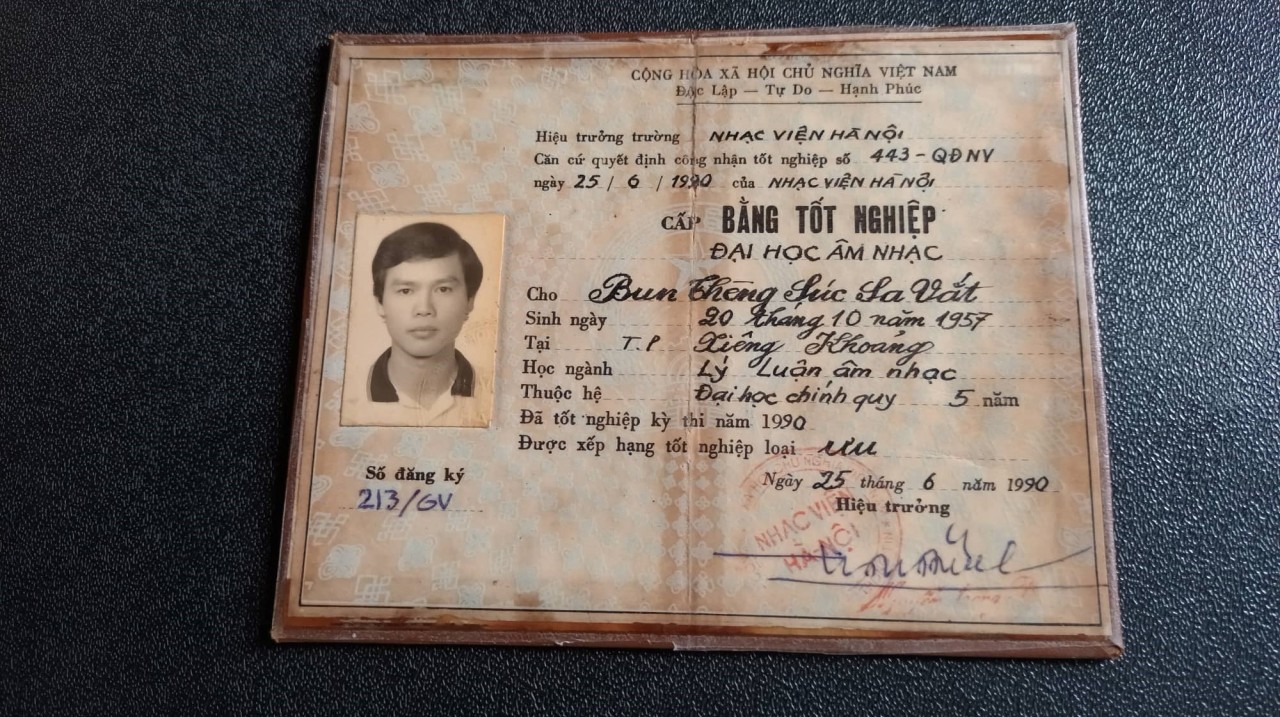 CỘNG HÒA XÃ HỘI CHỦ NGHĨA VIỆT NAM
Độc Lập — Tự Do — Hạnh Phúc
Hiệu trưởng trường NHẠC VIỆN HÀ NỘI
Căn cứ quyết định công nhận tốt nghiệp số 443 - QĐNV
ngày 25 / 6 / 1990 của NHẠC VIỆN HÀ NỘI
CẤP BẰNG TỐT NGHIỆP
ĐẠI HỌC ÂM NHẠC
Cho Bun Thêng Súc Sa Vắt
Sinh ngày 20 tháng 10 năm 1957
Tại T.P Xiêng Khoảng
Học ngành Lý Luận âm nhạc
Thuộc hệ Đại học chính quy 5 năm
Đã tốt nghiệp kỳ thi năm 1990
Được xếp hạng tốt nghiệp loại ưu
Ngày 25 tháng 6 năm 1990
Hiệu trưởng
NHẠC VIỆN
HÀ NỘI
Số đăng ký
213/GV